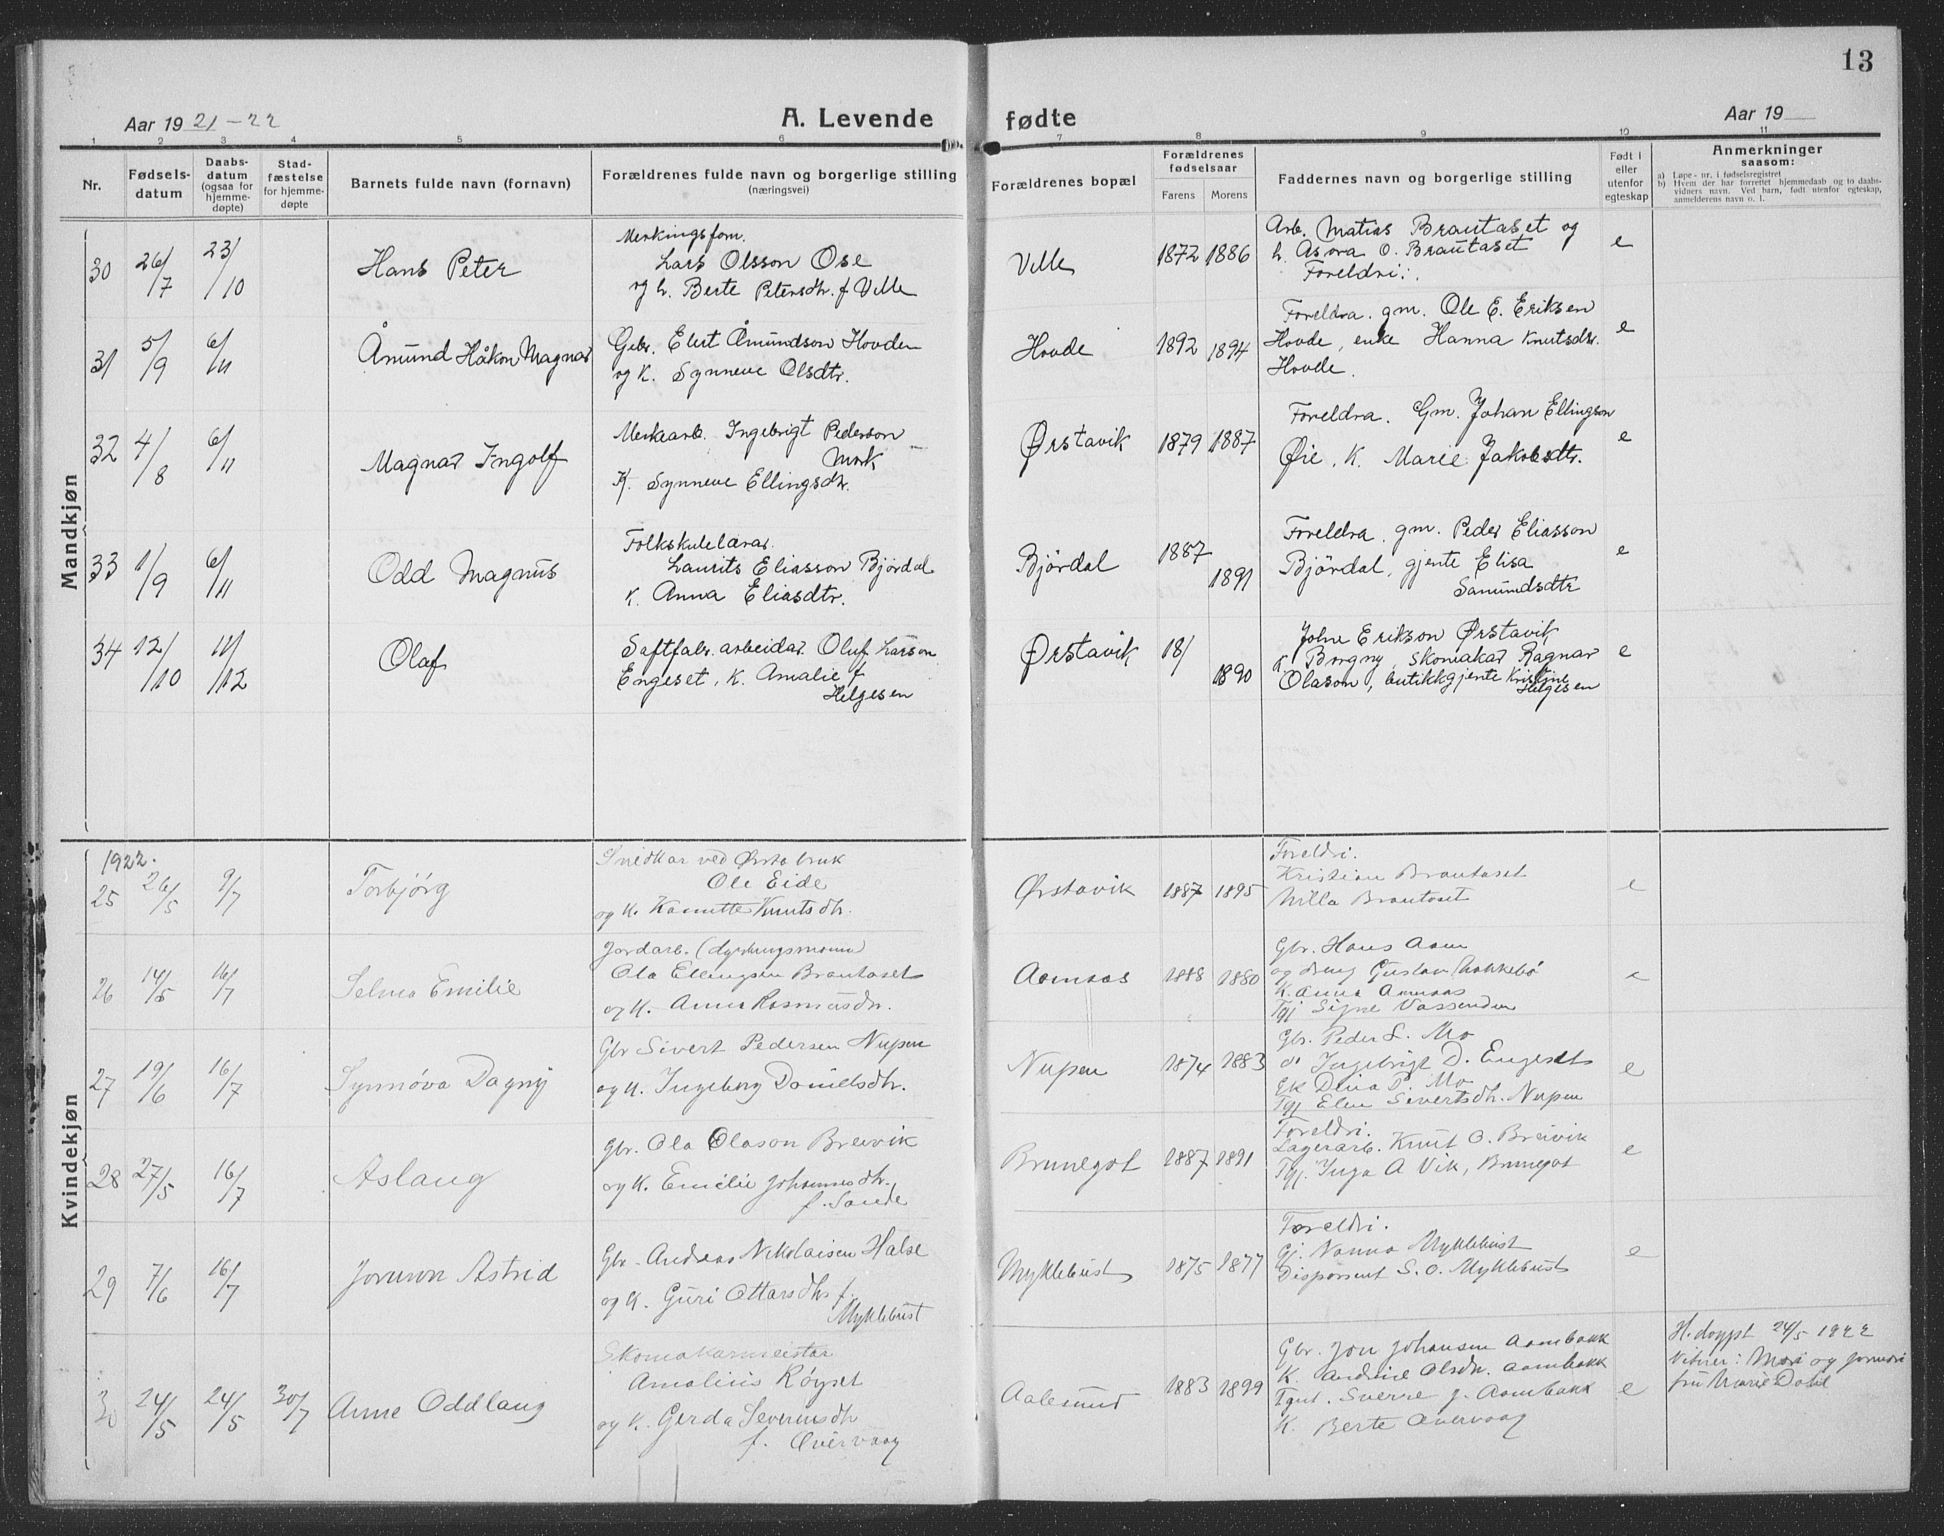 13
Aar 1921-22
A. Levende fødte
Aar 19
1 2 3 4 5 6 7 8 9 10 11
Nr.
Fødsels-
datum
Daabs-
datum
(ogsaa for
hjemme-
døpte)
Stad-
fæstelse
for hjemme-
døpte
Barnets fulde navn (fornavn)
Forældrenes fulde navn og borgerlige stilling
(næringsvei)
Forældrenes bopæl
Forældrenes
fødselsaar
Farens Morens
Faddernes navn og borgerlige stilling
Født i
eller
utenfor
egteskap
Anmerkninger
saasom:
a) Løpe-nr. i fødselsregistret
b) Hvem der har forrettet hjemmedaab og to daabs-
vidners navn. Ved barn, født utenfor egteskap,
anmelderens navn o. l.
Mandkjøn
30 26/7 23/10 Hans Peter
Merkingsform.
Lars Olsson Ose
og h. Berte Petersdtr. f Ville
Ville 1872 1886
Arb. Matias Brautaset og
h. Asora O. Brautaset
Foreldri:.
e
31 5/9 6/11 Åmund Håkon Magnar
Gbr. Elert Åmundson Hovden
og K. Synneve Olsdtr.
Hovde 1892 1894
Foreldra. gm. Ole E. Eriksen
Hovde, enke Hanna Knutsdtr.
Hovde.
e
32 4/8 6/11 Magnar Ingolf
Merkearb. Ingebrigt Pederson
Mork
K. Synneve Ellingsdtr.
Ørstavik 1879 1887
Foreldra. Gm. Johan Ellingson
Øie, K. Marie Jakobsdtr.
e
33 1/9 6/11 Odd Magnus
Folkskulelærar
Laurits Eliasson Bjørdal
K. Anna Eliasdtr.
Bjørdal 1887 1891
Foreldra. gm. Peder Eliasson
Bjørdal, gjente Elisa
Samundsdtr
e
34 12/10 11/12 Olaf
Saftfabr. arbeidar Oluf Larson
Engeset, K. Amalie f
Helgesen
Ørstavik 18/ 1890
Johe Erikson Ørstavik
K. Borgny, skomakar Ragnar
Olason, butikkgjente Kristine
Helgesen
e
Kvindekjøn
1922.
25 26/5 9/7 Torbjørg
Snedkar ved Ørsta bruk
Ole Eide
og K. Kamitte Knutsdtr.
Ørstavik 1887 1895
Foreldri.
Kristian Brautaset
Milla Brautaset
e
26 14/5 16/7 Selma Emilie
Jordarb. (dyrkingsmann)
Ola Ellingsen Brautaset
og K. Anna Rasmusdtr.
Aamaas 1888 1880
Gbr. Hans Aam
og dreng Gustav Hakkebø
K. Anna Aamaas
Tgj Signe Vassenden
e
27 19/6 16/7 Synnøva Dagny
Gbr Sivert Pedersen Nupen
og K. Ingeborg Danielsdtr.
Nupen 1874 1883
Gbr. Peder L. Mo
o Ingebrigt D. Engeset
Gk Dina P. Mo
Tgj Elen Sivertsdtr. Nupen
e
28 27/5 16/7 Aslaug
Gbr. Ola Olason Breivik
og K. Emilie Johannesdtr.
f. Sande
Brunegot 1887 1891
Foreldri.
Lagerarb. Knut O. Breivik
Tgj. Inga A Vik, Brunegot
e
29 7/6 16/7 Jorunn Astrid
Gbr. Andreas Nikolaisen Halse
og K. Guri Ottarsdtr f.
Myklebust
Myklebust 1875 1877
Foreldri.
Gj. Nanna Myklebust
Disponent S. O. Myklebust
e
30 24/5 24/5 30/7 Anne Oddlaug
Skomakarmeistar
Amalius Røyset
og K. Gerda Severinsdtr
f. Overvaag
Aalesund 1883 1899
Gbr. Jon Johansen Aambakk
K. Andrine Olsdtr. Aambakk
Tgut. Sverre J. Aambakk
K. Berte Overvaag
e
H. døypt 24/5 1922
Vitner: Mor og jormor
fru Marie Dahl